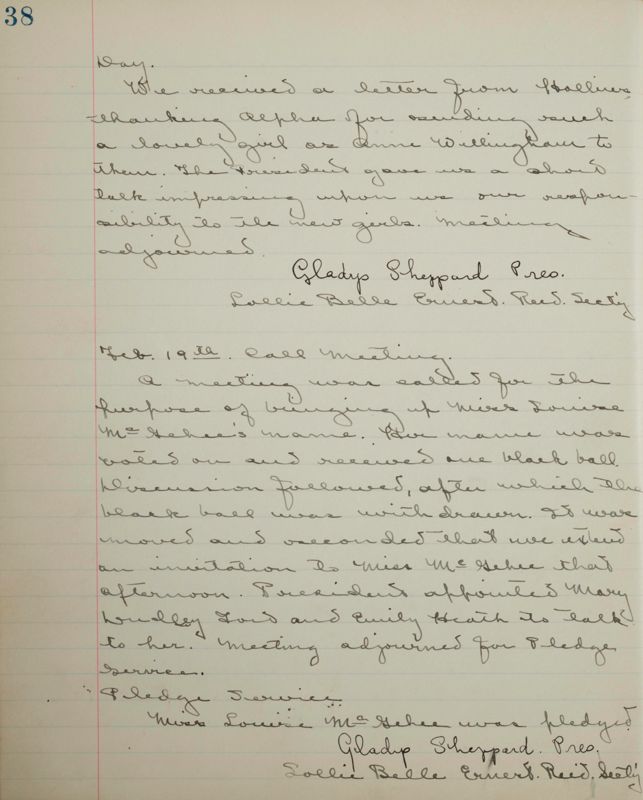 38
Day.
We received a letter from Hollins
thanking Alpha for sending such
a lovely girl as Anne Willingham to
them. The President gave us a short
talk impressing upon us our respon-
sibility to the new girls. Meeting
adjourned.
Gladys Sheppard Pres.
Lollie Belle Ernest. Recd. Sect'y
Feb. 19th. Call Meeting.
A meeting was called for the
purpose of bringing up Miss Louise
McGehee's name. Her name was
voted on and received one black ball.
Discussion followed, after which the
black ball was withdrawn. It was
moved and seconded that we extend
an invitation to Miss McGehee that
afternoon. President appointed Mary
Dudley Ford and Emily Heath to talk
to her. Meeting adjourned for Pledge
Service.
Pledge Service
Miss Louise McGehee was pledged
Gladys Sheppard. Pres.
Lollie Belle Ernest. Recd. Sect'y